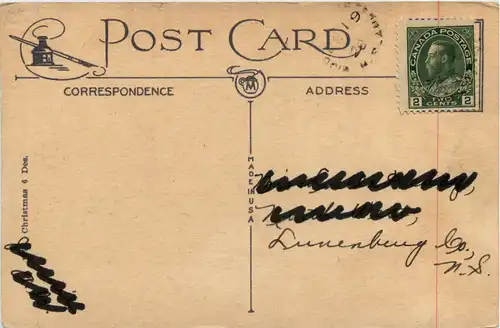 POST CARD
CANADA POSTAGE
2 CENTS 2
CORRESPONDENCE
ADDRESS
M
MADE IN USA
Christmas 6 Des.
Lunenburg Co.,
N.S.